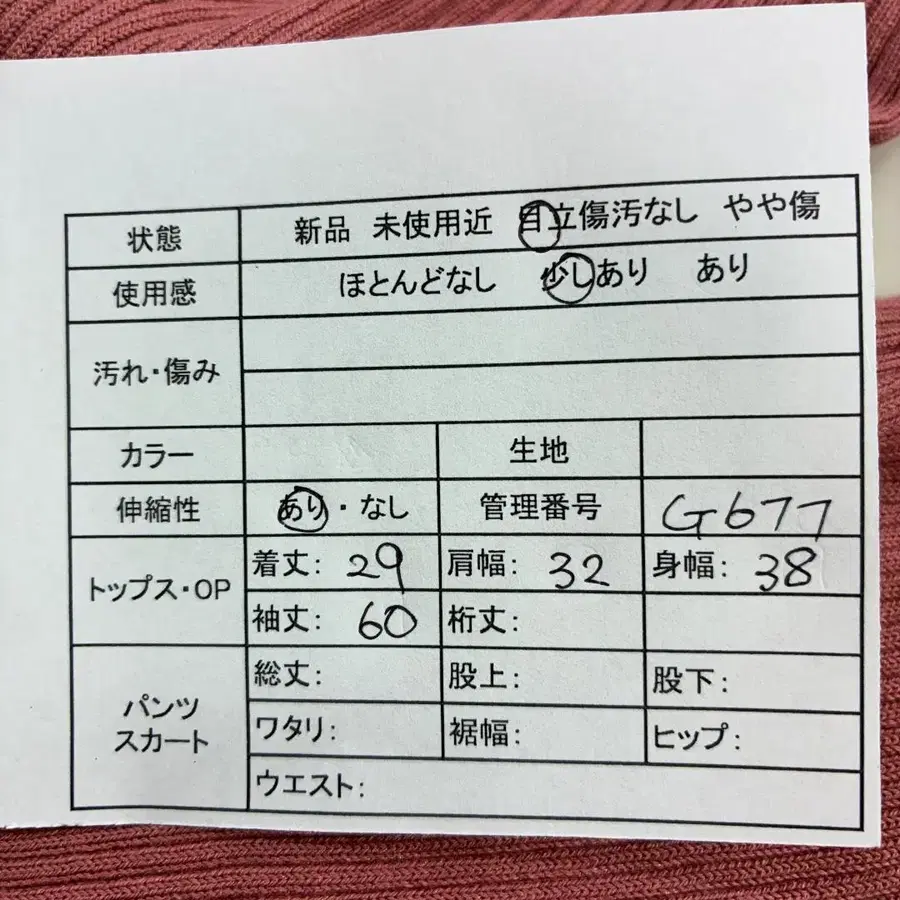 状態 新品 未使用近 目立傷汚なし やや傷
使用感 ほとんどなし 少しあり あり
汚れ・傷み
カラー 生地
伸縮性 あり・なし 管理番号 G677
トップス・OP 着丈: 29 肩幅: 32 身幅: 38
袖丈: 60 裄丈:
パンツ スカート 総丈: 股上: 股下:
ワタリ: 裾幅: ヒップ:
ウエスト: